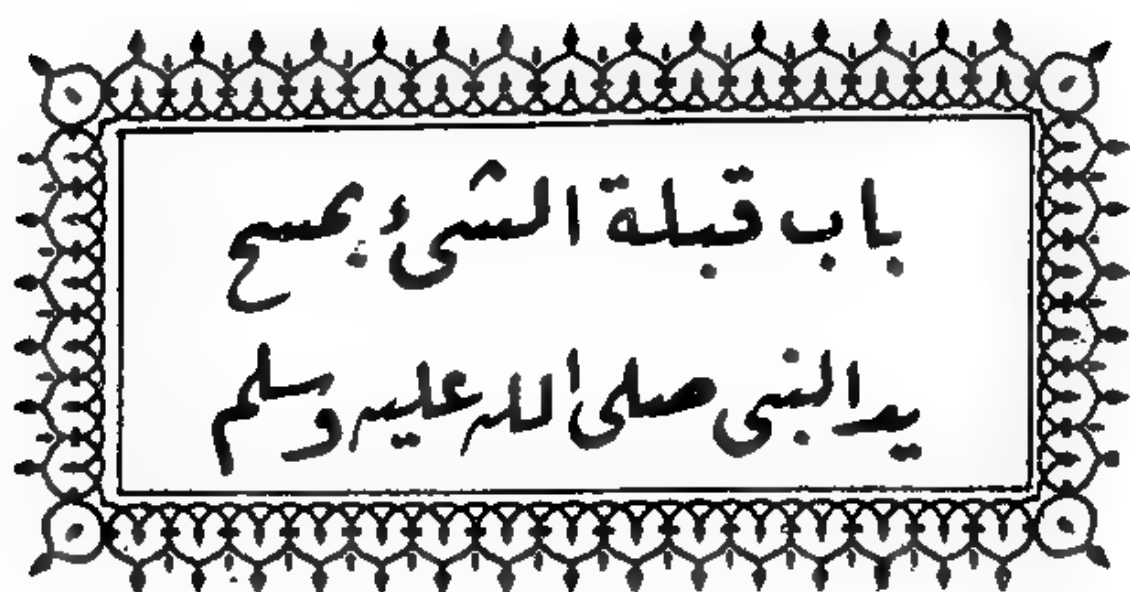 باب قبلة الشئ بمسح
يد النبى صلى الله عليه وسلم